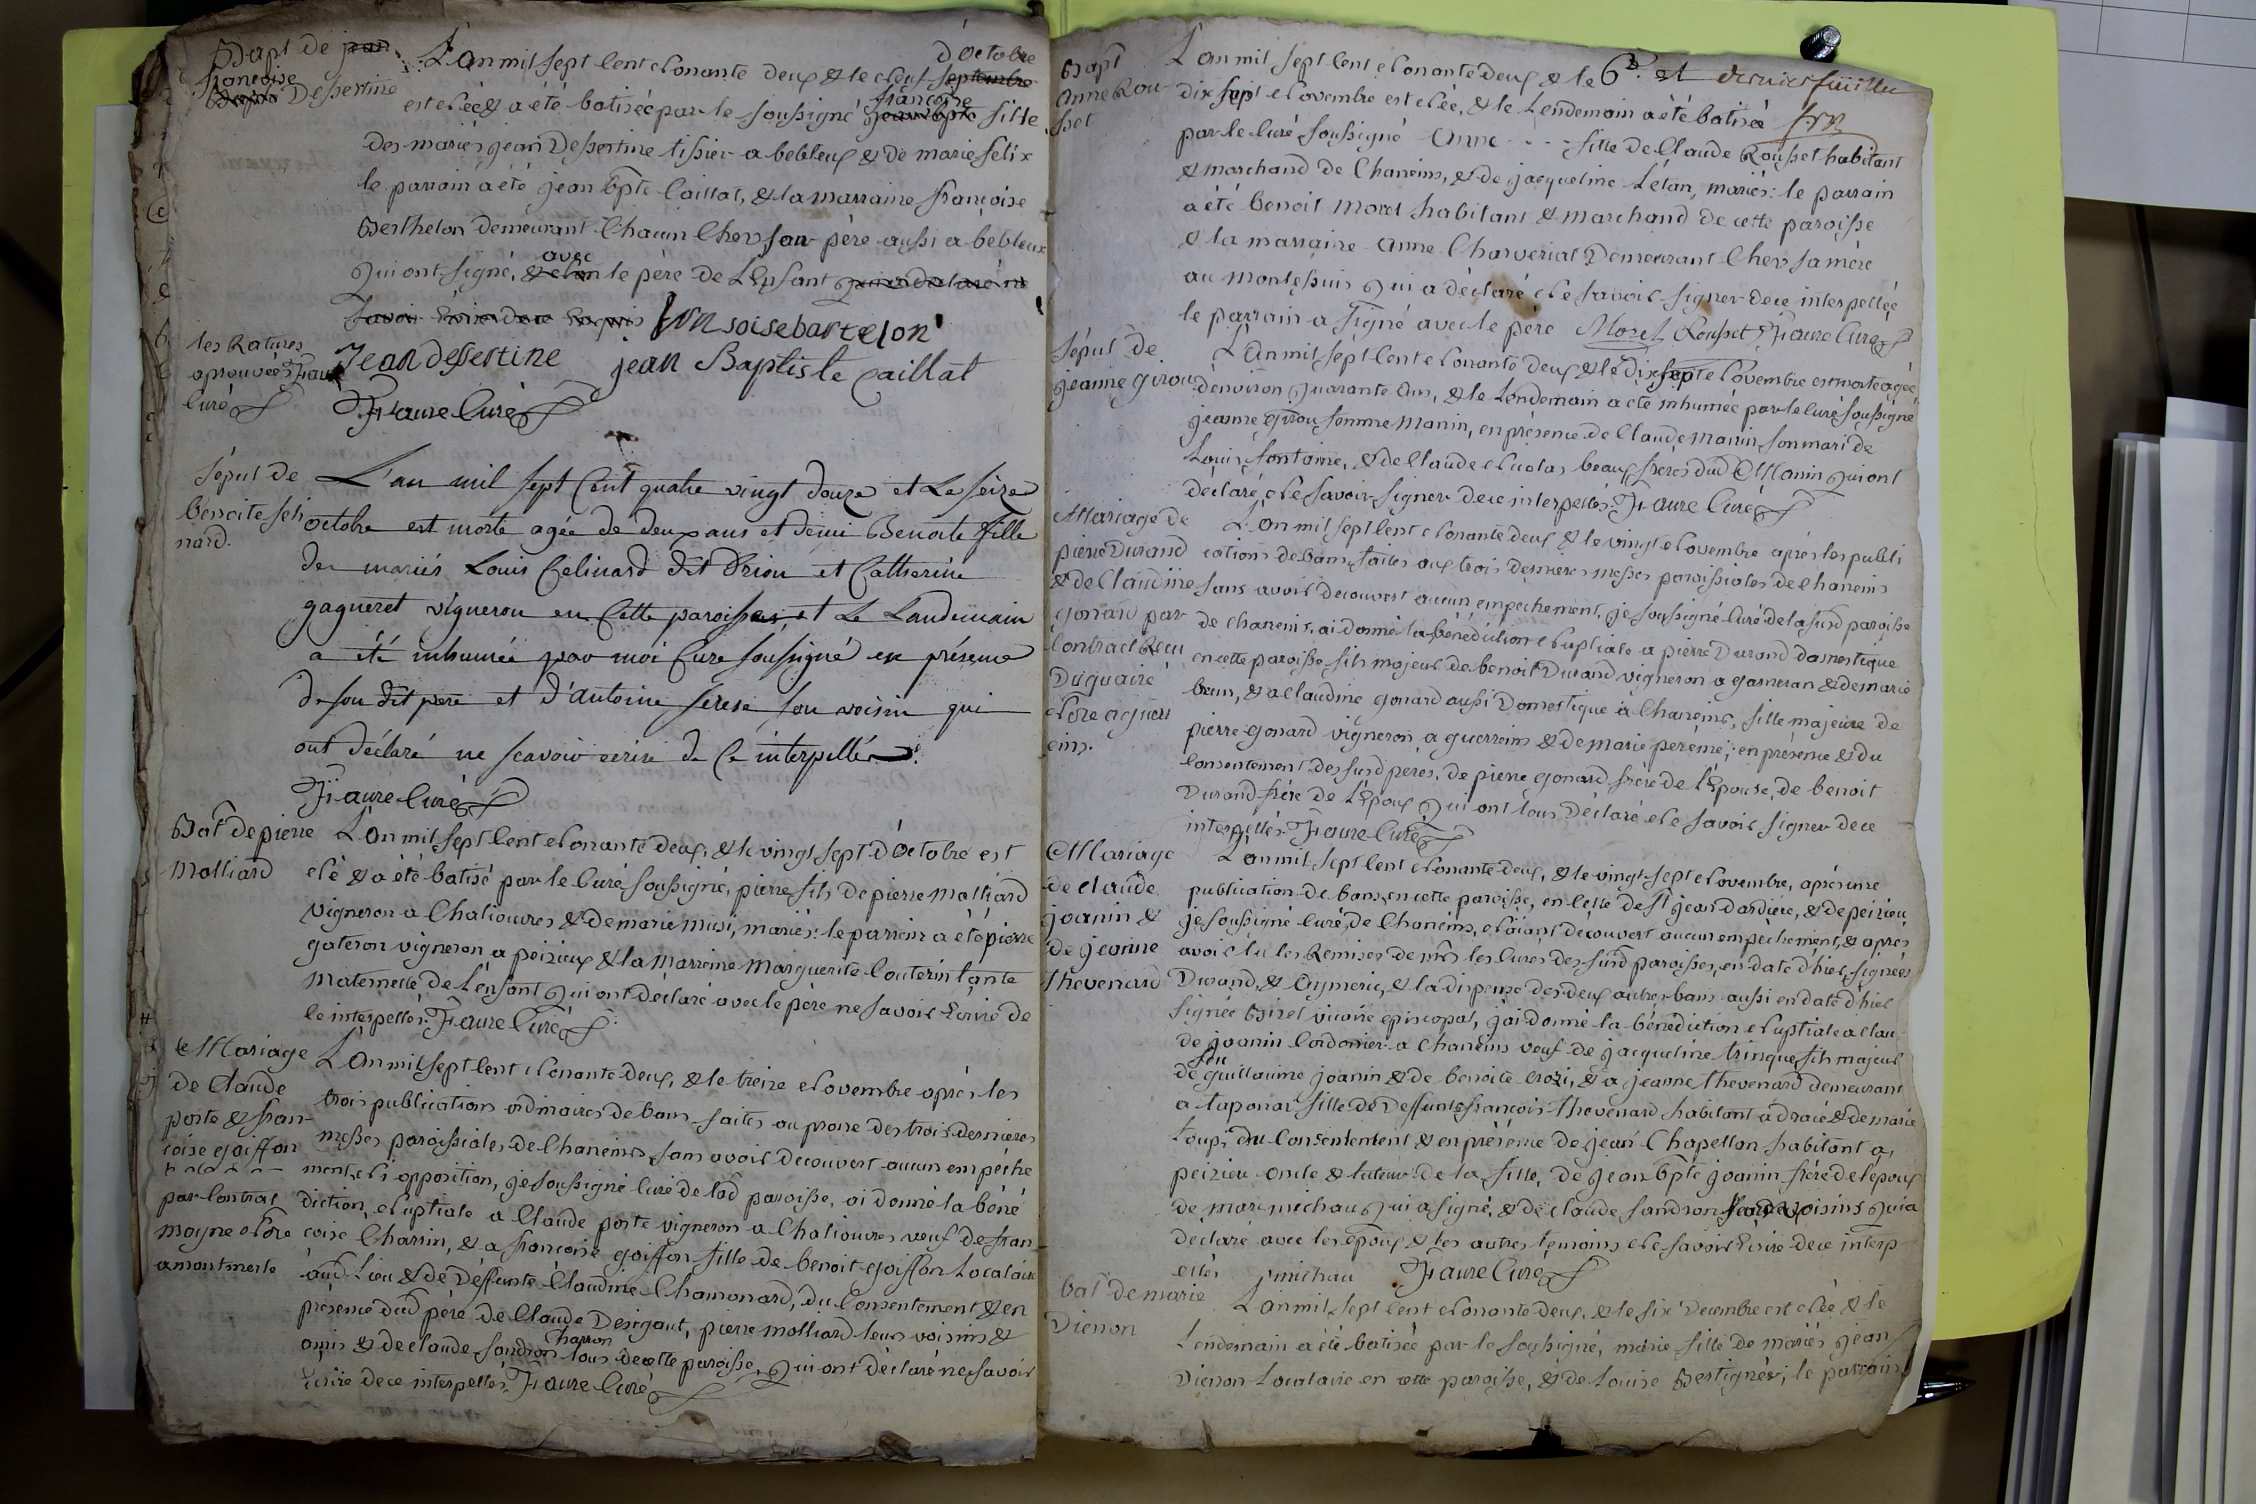 Bapt de jean
françoise
bapte Dessertine
L'an mil sept cent nonante deux & le neuf septembre d'octobre
est née & a été batisée par le soussigné jean bpte françoise fille
des mariés jean Dessertine tissier a bebleux & de marie felix
le parrain a été jean bpte Caillat, & la marraine françoise
Berthelon demeurant chacun chez son père aussi a bebleux
qui ont signé, avec le père de L'Enfant
Les Ratures
aprouvées Faure
curé
fransoise bartelon
Jean dessertine jean Baptiste Caillat
Faure Curé
sépul de
bénoite seli
nard.
L'an mil sept Cent quatre vingt douze et Le seize
octobre est morte agée de deux ans et demi Benoite fille
des mariés Louis Celinard dit Brion et Catherine
gagneret vigneron en Cette paroisse, et Le Landemain
a été inhumée par moi Curé soussigné en présence
de son dit pere et d'antoine son voisin qui
ont déclaré ne scavoir ecrire de Ce interpellés.
Faure Curé
Bat de pierre
Molliard
L'an mil sept cent nonante deux, & le vingt sept d'octobre est
né & a été batisé par le Curé soussigné, pierre fils de pierre Molliard
vigneron a Chaliouvres & de marie musi, mariés: le parrein a été pierre
gateron vigneron a peizieux & la Marreine Marguerite Couterin tante
Maternelle de l'enfant qui ont déclaré avec le père ne savoir Ecrire de
ce interpellés. Faure Curé
Mariage
de Claude
porte & fran-
coise goiffon
par Contrat
moyne nore
a montmerle
L'an mil sept cent nonante deux, & le treize novembre après les
trois publications ordinaires de bans faites au prone des trois dernieres
messes paroissiales de Chaneins, sans avoir decouvert aucun empêche
ment, ni opposition, je soussigné curé de lad paroisse, ai donné la béné
diction nuptiale a Claude porte vigneron a Chaliouvres veuf de fran
coise Charrin, & a françoise goiffon fille de benoit goiffon Locataire
aud Lieu & de Deffunte Claudine Chamonard, du Consentement & en
présence dud père de Claude Desigaut, pierre molliard leurs voisins &
amis & de claude sandron charron tous de cette paroisse, qui ont déclaré ne savoir
Ecrire de ce interpellés. Faure Curé
6e et dernier feuillet
Bapt
anne Rou-
sset
L'an mil sept cent nonante deux & le
dix sept novembre est née, & le Lendemain a été batisée
par le Curé soussigné Anne - - - fille de Claude Rousset habitant
& marchand de Chaneins, & de jacqueline Létan, mariés: le parrain
a été benoit Morel habitant & marchand de cette paroisse
& la marraine Anne Charveriat Demeurant Chez sa mère
au montessuis qui a déclaré ne savoir signer de ce interpellée
le parrain a signé avec le père Morel Rousset Faure Curé
sépul de
jeanne girou
L'an mil sept cent nonante deux & le dix sept novembre est morte agée
d'environ quarante ans, & le Lendemain a été inhumée par le curé soussigné
jeanne girou femme Manin, en présence de Claude manin son mari de
Louis fontaine, & de Claude nicolas beaux frères dud Manin qui ont
déclaré ne savoir signer de ce interpellés. Faure Curé
Mariage de
pierre Durand
& de Claudine
gonard par
Contract Recu
Duquaire
nore a guerr
eins.
L'an mil sept cent nonante deux & le vingt novembre après les publi
cations de bans faites aux trois dernieres messes paroissiales de Chaneins
sans avoir decouvert aucun empechement, je soussigné Curé de la susd paroisse
de chaneins, ai donné la bénédiction nuptiale a pierre Durand domestique
en cette paroisse fils majeur de benoit Durand vigneron a garneran & de marie
brun, & a claudine gonard aussi Domestique a Chaneins, fille majeure de
pierre gonard vigneron a guerreins & de marie pereme; en présence & du
consentement des susd pères, de pierre gonard frère de l'Epouse, de benoit
Durand frère de L'Epoux qui ont tous Déclaré ne savoir signer de ce
interpellés. Faure Curé
Mariage
de claude
joanin &
de jeanne
thevenard
L'an mil sept cent nonante deux, & le vingt sept novembre, après une
publication de bans en cette paroisse, en celle de st jean dardiere, & de peizieu
je soussigné curé de Chaneins, n'aiant decouvert aucun empêchement, & après
avoir lu les Remises de mrs les Curés des susd paroisses, en date d'hier, signées
Durand, & Aymeric, & la dispense des deux autres bans aussi en date d'hier
signée Biret vicaire episcopal, j'ai donné la bénédiction nuptiale a Clau
de joanin Cordonier a Chaneins veuf de jacqueline trinque fils majeur
de feu guillaume joanin & de benoite crozi, & a jeanne thevenard demeurant
a taponas fille de Deffunts françois thevenard habitant a dracé & de marie
Loup, du Consentement & en présence de jean Chapellon habitant a
peizieu oncle & tuteur de la fille, de jean bpte joanin frère de l'epoux
de marc michau qui a signé, & de claude sandron voisins qui a
déclaré avec les époux & les autres temoins ne savoir Ecrire de ce interp
ellés michau Faure Curé
bat de marie
Vienon
L'an mil sept cent nonante deux, & le six Decembre est née & le
Lendemain a été batisée par le soussigné, marie fille de mariés jean
vienon Locataire en cette paroisse, & de Louise Bertignés; le parrain